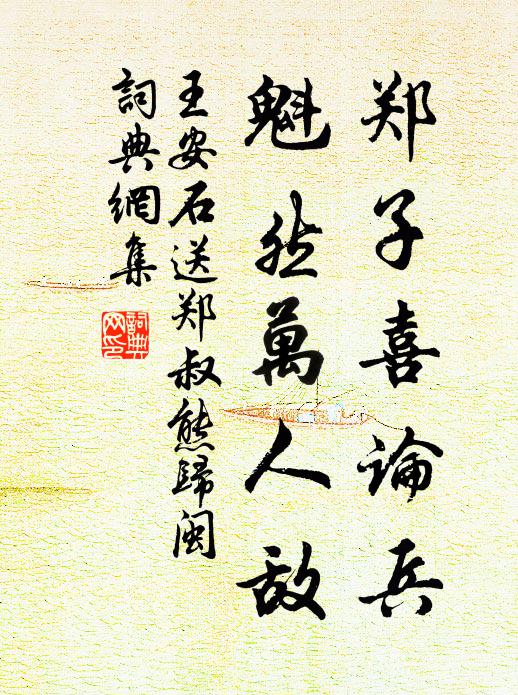 郑子喜論兵
魁然萬人敌
王安石送郑叔熊歸闽
詞典網集
詞典網印